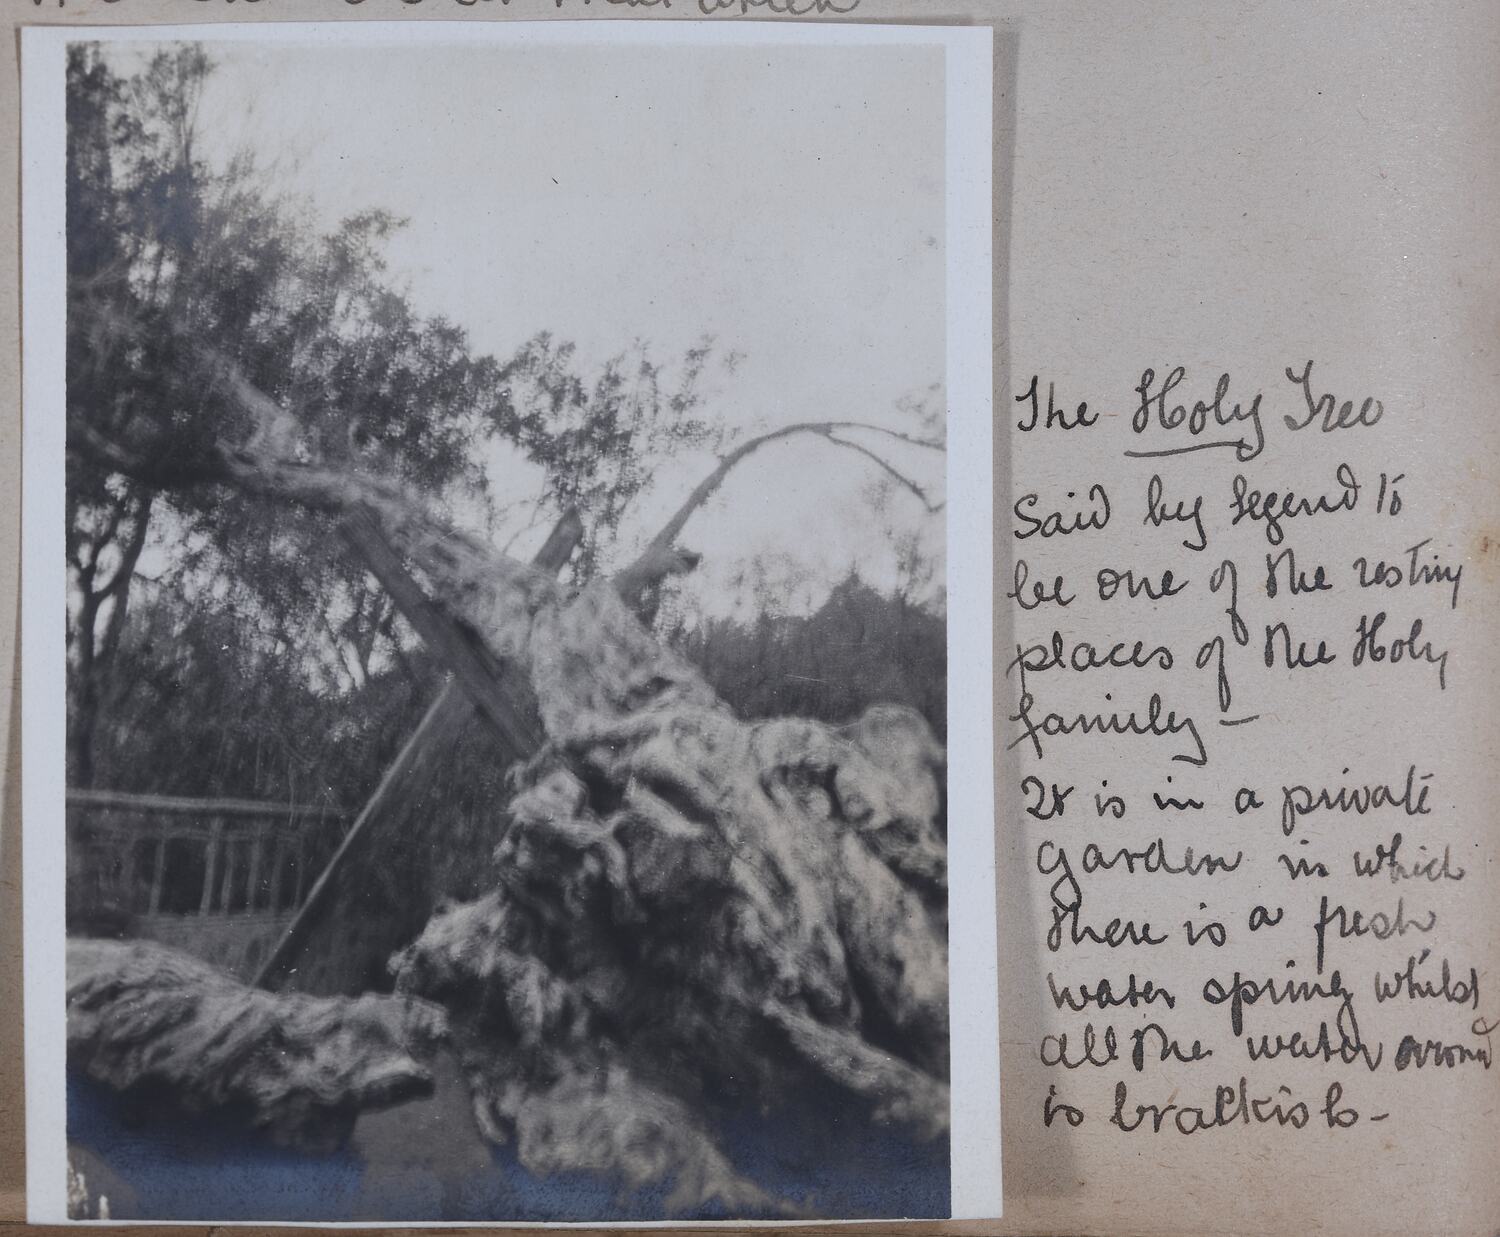 which
The Holy Tree
Said by legend to
be one of the resting
places of the Holy
family –
It is in a private
garden in which
there is a fresh
water spring whilst
all the water around
is brackish –